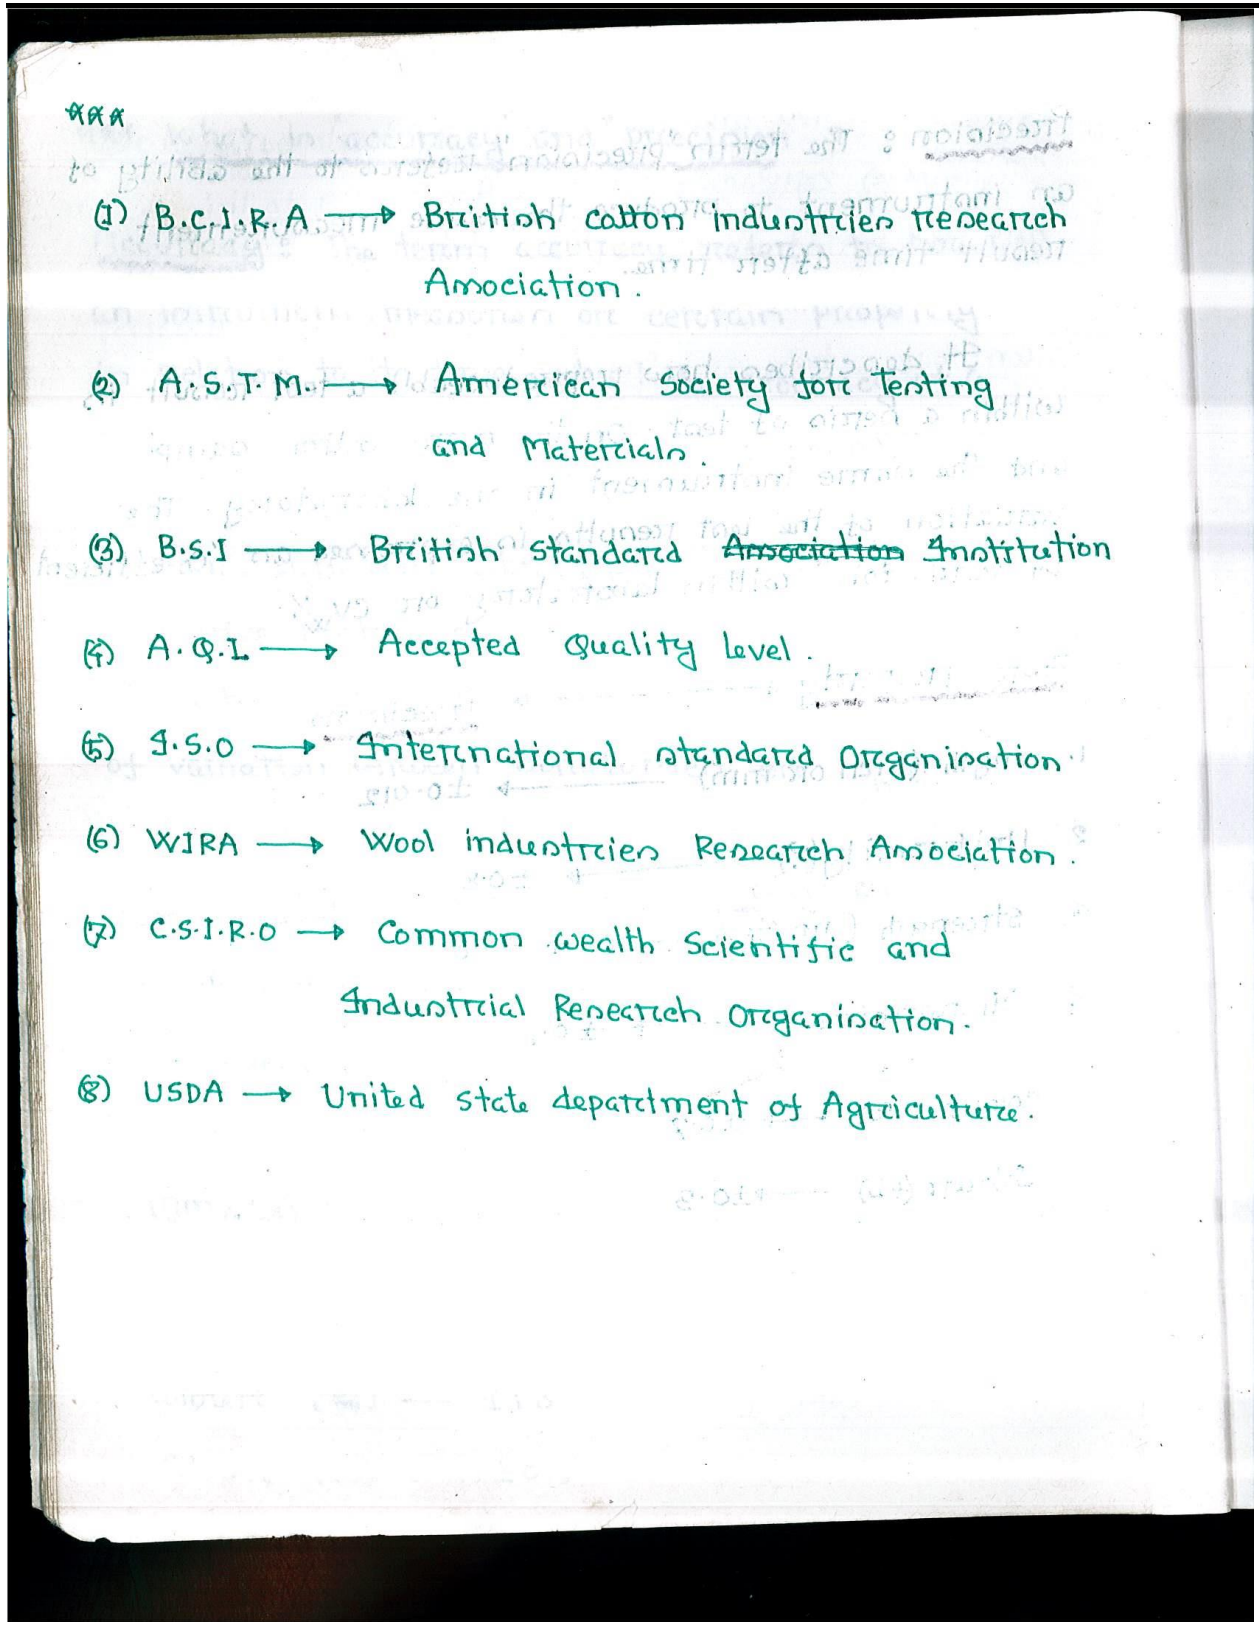 ***
(1) B.C.I.R.A → British cotton industries Research
Association.
(2) A.S.T.M. → American Society for Testing
and Materials.
(3) B.S.I → British Standard ~~Association~~ Institution
(4) A.Q.L → Accepted Quality Level.
(5) I.S.O → International standard Organisation.
(6) WIRA → Wool industries Research Association.
(7) C.S.I.R.O → Common wealth Scientific and
Industrial Research Organisation.
(8) USDA → United state department of Agriculture.